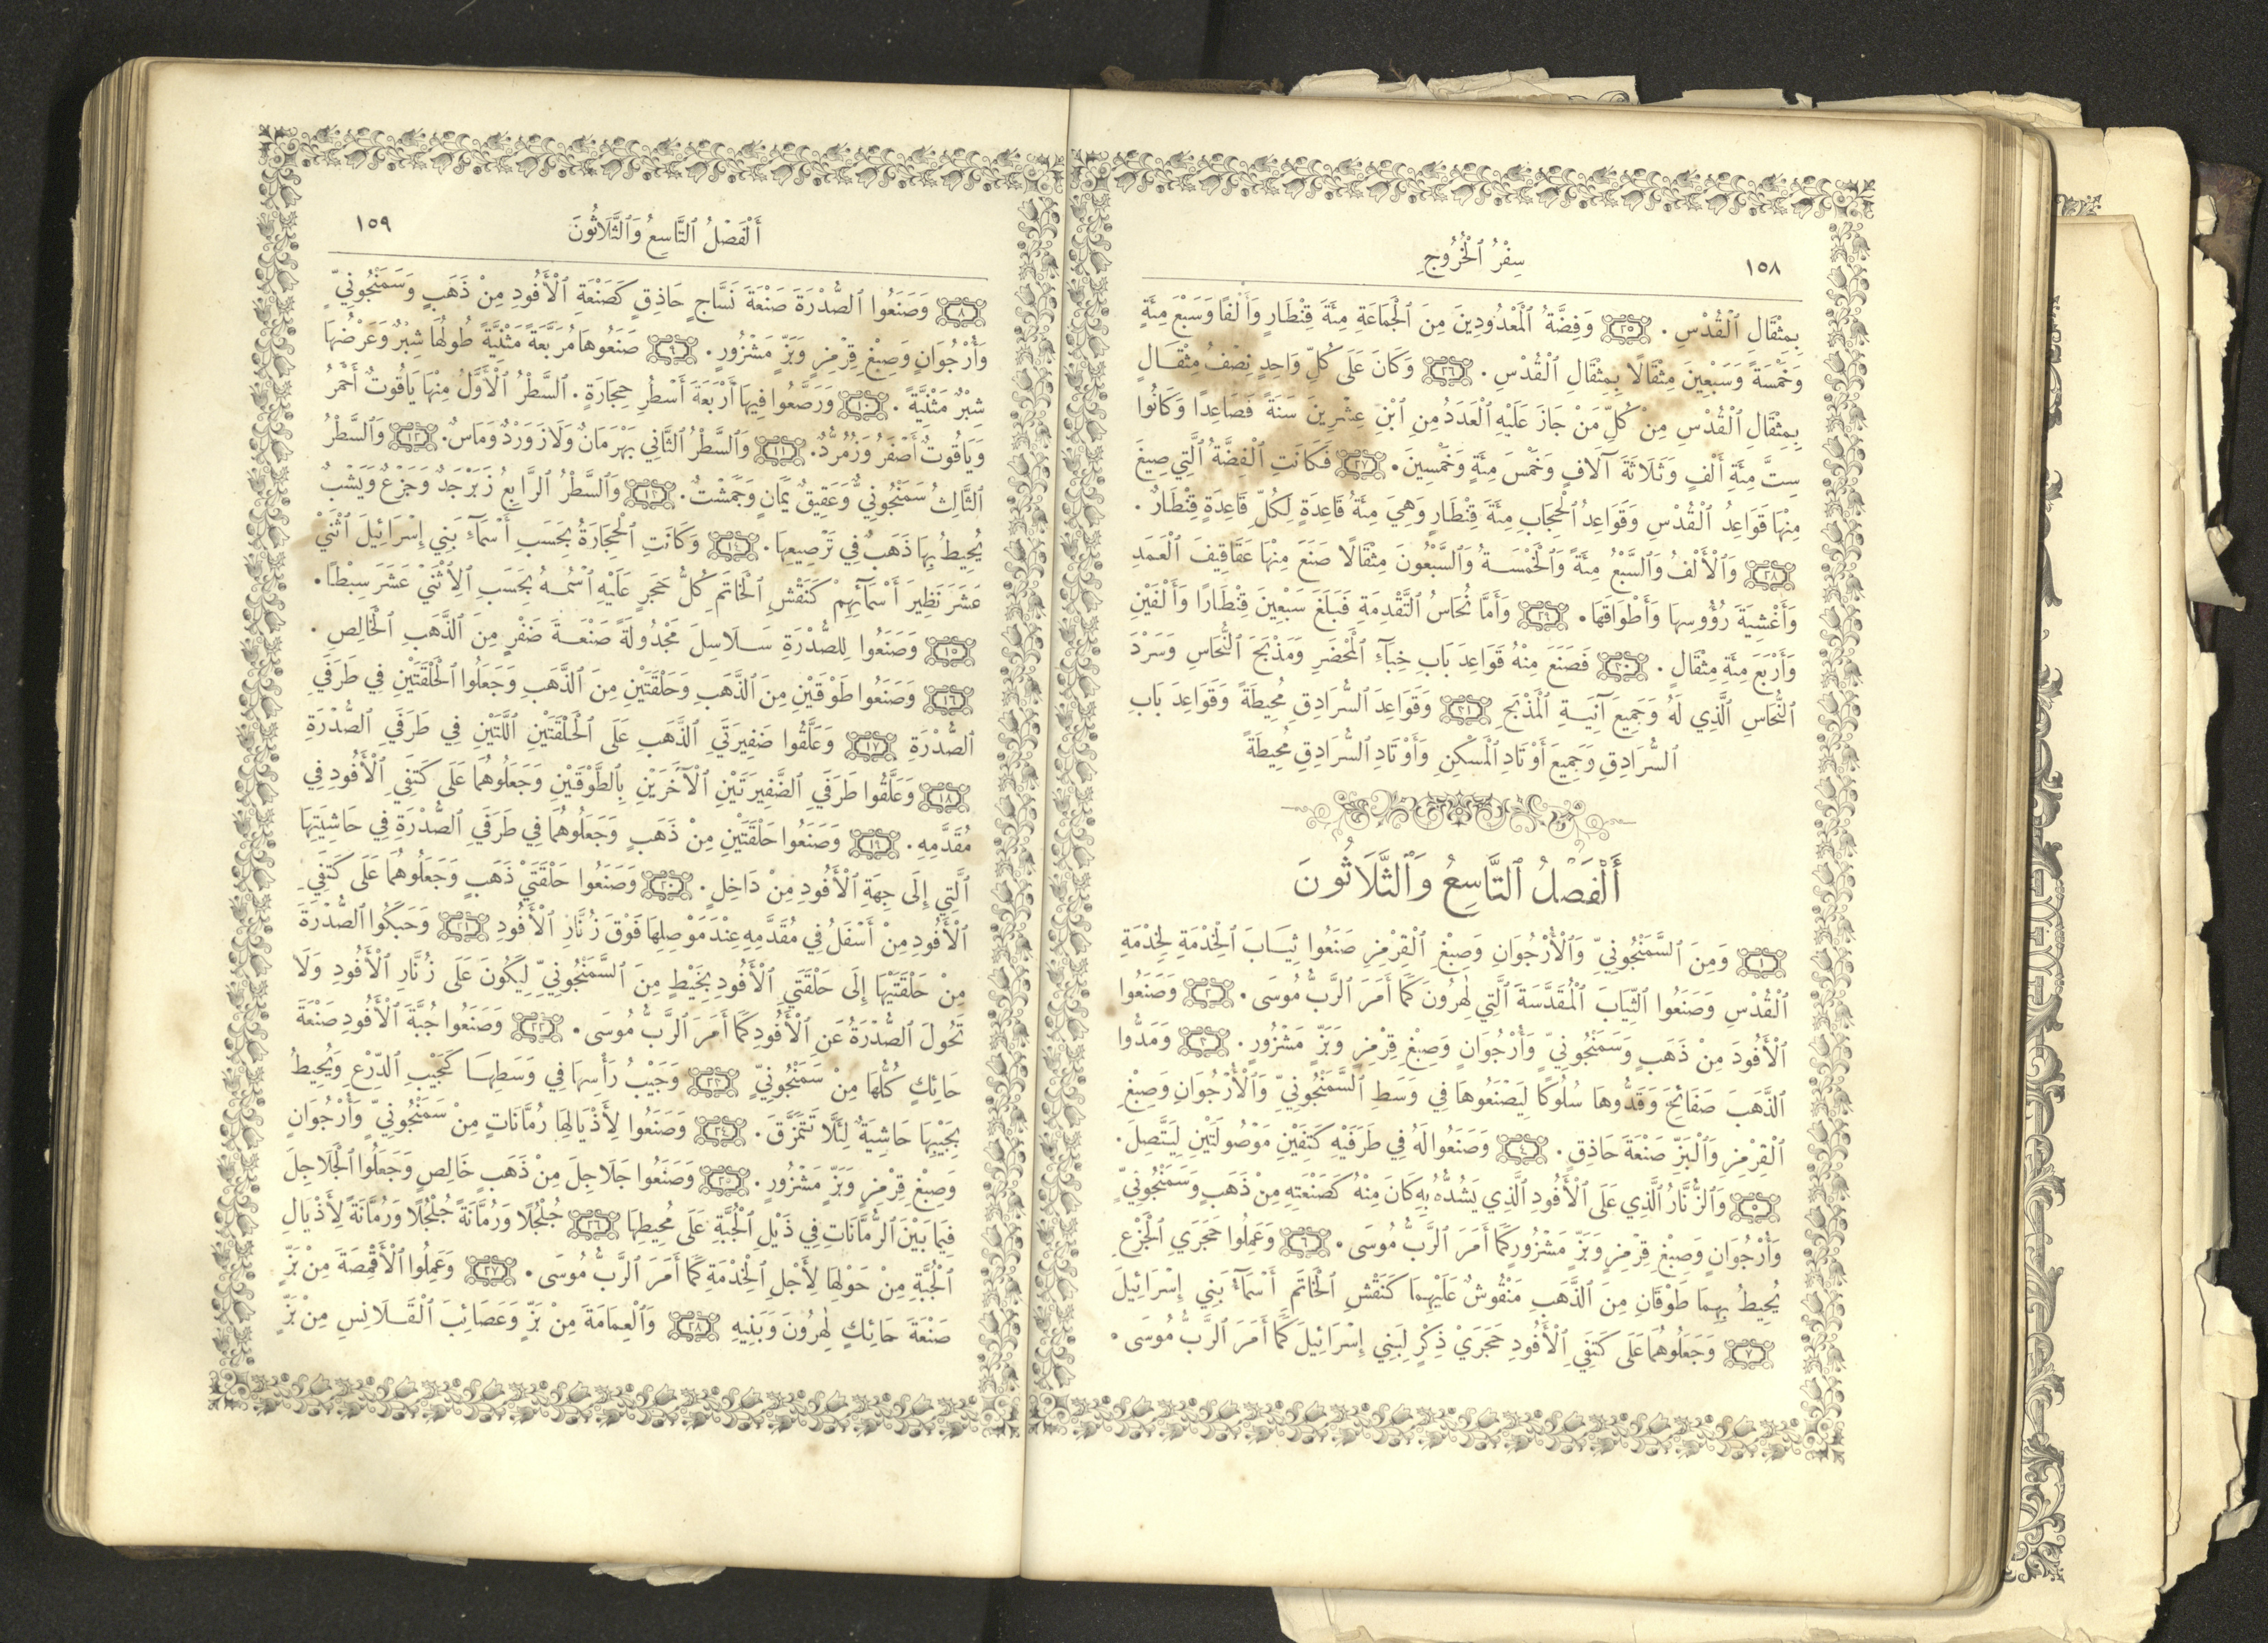 ١٥٨
سِفْرُ ٱلْخُرُوجِ
بِمِثْقَالِ ٱلْقُدْسِ. ٢٥ وَفِضَّةُ ٱلْمَعْدُودِينَ مِنَ ٱلْجَمَاعَةِ مِئَةَ قِنْطَارٍ وَأَلْفًا وَسَبْعَ مِئَةٍ
وَخَمْسَةً وَسَبْعِينَ مِثْقَالًا بِمِثْقَالِ ٱلْقُدْسِ. ٢٦ وَكَانَ عَلَى كُلِّ وَاحِدٍ نِصْفُ مِثْقَالٍ
بِمِثْقَالِ ٱلْقُدْسِ مِنْ كُلِّ مَنْ جَازَ عَلَيْهِ ٱلْعَدَدُ مِنِ ٱبْنِ عِشْرِينَ سَنَةً فَصَاعِدًا وَكَانُوا
سِتَّ مِئَةِ أَلْفٍ وَثَلَاثَةَ آلَافٍ وَخَمْسَ مِئَةٍ وَخَمْسِينَ. ٢٧ فَكَانَتِ ٱلْفِضَّةُ ٱلَّتِي صِيغَ
مِنْهَا قَوَاعِدُ ٱلْقُدْسِ وَقَوَاعِدُ ٱلْحِجَابِ مِئَةَ قِنْطَارٍ وَهِيَ مِئَةُ قَاعِدَةٍ لِكُلِّ قَاعِدَةٍ قِنْطَارٌ.
٢٨ وَٱلْأَلْفُ وَٱلسَّبْعُ مِئَةً وَٱلْخَمْسَةُ وَٱلسَّبْعُونَ مِثْقَالًا صَنَعَ مِنْهَا عَقَاقِيفَ ٱلْعَمَدِ
وَأَغْشِيَةَ رُؤُوسِهَا وَأَطْوَاقَهَا. ٢٩ وَأَمَّا نُحَاسُ ٱلتَّقْدِمَةِ فَبَلَغَ سَبْعِينَ قِنْطَارًا وَأَلْفَيْنِ
وَأَرْبَعَ مِئَةِ مِثْقَالٍ. ٣٠ فَصَنَعَ مِنْهُ قَوَاعِدَ بَابِ خِبَآءِ ٱلْمَحْضَرِ وَمَذْبَحَ ٱلنُّحَاسِ وَسَرْدَ
ٱلنُّحَاسِ ٱلَّذِي لَهُ وَجَمِيعَ آنِيَةِ ٱلْمَذْبَحِ ٣١ وَقَوَاعِدَ ٱلسُّرَادِقِ مُحِيطَةً وَقَوَاعِدَ بَابِ
ٱلسُّرَادِقِ وَجَمِيعَ أَوْتَادِ ٱلْمَسْكِنِ وَأَوْتَادِ ٱلسُّرَادِقِ مُحِيطَةً
أَلْفَصْلُ ٱلتَّاسِعُ وَٱلثَّلَاثُونَ
١ وَمِنَ ٱلسَّمَنْجُونِيِّ وَٱلْأُرْجُوَانِ وَصِبْغِ ٱلْقِرْمِزِ صَنَعُوا ثِيَابَ ٱلْخِدْمَةِ لِخِدْمَةِ
ٱلْقُدْسِ وَصَنَعُوا ٱلثِّيَابَ ٱلْمُقَدَّسَةَ ٱلَّتِي لِهٰرُونَ كَمَا أَمَرَ ٱلرَّبُّ مُوسَى. ٢ وَصَنَعُوا
ٱلْأَفُودَ مِنْ ذَهَبٍ وَسَمَنْجُونِيٍّ وَأُرْجُوَانٍ وَصِبْغِ قِرْمِزٍ وَبَزٍّ مَشْزُورٍ. ٣ وَمَدُّوا
ٱلذَّهَبَ صَفَائِحَ وَقَدُّوهَا سُلُوكًا لِيَصْنَعُوهَا فِي وَسَطِ ٱلسَّمَنْجُونِيِّ وَٱلْأُرْجُوَانِ وَصِبْغِ
ٱلْقِرْمِزِ وَٱلْبَزِّ صَنْعَةَ حَاذِقٍ. ٤ وَصَنَعُوا لَهُ فِي طَرَفَيْهِ كَتِفَيْنِ مَوْصُولَتَيْنِ لِيَتَّصِلَ.
٥ وَٱلزُّنَّارُ ٱلَّذِي عَلَى ٱلْأَفُودِ ٱلَّذِي يَشُدُّهُ بِهِ كَانَ مِنْهُ كَصَنْعَتِهِ مِنْ ذَهَبٍ وَسَمَنْجُونِيٍّ
وَأُرْجُوَانٍ وَصِبْغِ قِرْمِزٍ وَبَزٍّ مَشْزُورٍ كَمَا أَمَرَ ٱلرَّبُّ مُوسَى. ٦ وَعَمِلُوا حَجَرَيِ ٱلْجَزْعِ
يُحِيطُ بِهِمَا طَوْقَانِ مِنَ ٱلذَّهَبِ مَنْقُوشٌ عَلَيْهِمَا كَنَقْشِ ٱلْخَاتَمِ أَسْمَآءُ بَنِي إِسْرَائِيلَ
٧ وَجَعَلُوهُمَا عَلَى كَتِفَيِ ٱلْأَفُودِ حَجَرَيْ ذِكْرٍ لِبَنِي إِسْرَائِيلَ كَمَا أَمَرَ ٱلرَّبُّ مُوسَى.
أَلْفَصْلُ ٱلتَّاسِعُ وَٱلثَّلَاثُونَ
١٥٩
٨ وَصَنَعُوا ٱلصُّدْرَةَ صَنْعَةَ نَسَّاجٍ حَاذِقٍ كَصَنْعَةِ ٱلْأَفُودِ مِنْ ذَهَبٍ وَسَمَنْجُونِيٍّ
وَأُرْجُوَانٍ وَصِبْغِ قِرْمِزٍ وَبَزٍّ مَشْزُورٍ. ٩ صَنَعُوهَا مُرَبَّعَةً مَثْنِيَّةً طُولُهَا شِبْرٌ وَعَرْضُهَا
شِبْرٌ مَثْنِيَّةً. ١٠ وَرَصَّعُوا فِيهَا أَرْبَعَةَ أَسْطُرِ حِجَارَةٍ. ٱلسَّطْرُ ٱلْأَوَّلُ مِنْهَا يَاقُوتٌ أَحْمَرُ
وَيَاقُوتٌ أَصْفَرُ وَزُمُرُّدٌ. ١١ وَٱلسَّطْرُ ٱلثَّانِي بَهْرَمَانٌ وَلَازَوَرْدٌ وَمَاسٌ. ١٢ وَٱلسَّطْرُ
ٱلثَّالِثُ سَمَنْجُونِيٌّ وَعَقِيقٌ يَمَانٍ وَجَمَشْتٌ. ١٣ وَٱلسَّطْرُ ٱلرَّابِعُ زَبَرْجَدٌ وَجَزْعٌ وَيَشْبٌ
يُحِيطُ بِهَا ذَهَبٌ فِي تَرْصِيعِهَا. ١٤ وَكَانَتِ ٱلْحِجَارَةُ بِحَسَبِ أَسْمَآءِ بَنِي إِسْرَائِيلَ ٱثْنَيْ
عَشَرَ نَظِيرَ أَسْمَآئِهِمْ كَنَقْشِ ٱلْخَاتَمِ كُلُّ حَجَرٍ عَلَيْهِ ٱسْمُهُ بِحَسَبِ ٱلِٱثْنَيْ عَشَرَ سِبْطًا.
١٥ وَصَنَعُوا لِلصُّدْرَةِ سَلَاسِلَ مَجْدُولَةً صَنْعَةَ ضَفْرٍ مِنَ ٱلذَّهَبِ ٱلْخَالِصِ.
١٦ وَصَنَعُوا طَوْقَيْنِ مِنَ ٱلذَّهَبِ وَحَلْقَتَيْنِ مِنَ ٱلذَّهَبِ وَجَعَلُوا ٱلْحَلْقَتَيْنِ فِي طَرَفَيِ
ٱلصُّدْرَةِ ١٧ وَعَلَّقُوا ضَفِيرَتَيِ ٱلذَّهَبِ عَلَى ٱلْحَلْقَتَيْنِ ٱللَّتَيْنِ فِي طَرَفَيِ ٱلصُّدْرَةِ
١٨ وَعَلَّقُوا طَرَفَيِ ٱلضَّفِيرَتَيْنِ ٱلْآخَرَيْنِ بِٱلطَّوْقَيْنِ وَجَعَلُوهُمَا عَلَى كَتِفَيِ ٱلْأَفُودِ فِي
مُقَدَّمِهِ. ١٩ وَصَنَعُوا حَلْقَتَيْنِ مِنْ ذَهَبٍ وَجَعَلُوهُمَا فِي طَرَفَيِ ٱلصُّدْرَةِ فِي حَاشِيَتِهَا
ٱلَّتِي إِلَى جِهَةِ ٱلْأَفُودِ مِنْ دَاخِلٍ. ٢٠ وَصَنَعُوا حَلْقَتَيْ ذَهَبٍ وَجَعَلُوهُمَا عَلَى كَتِفَيِ
ٱلْأَفُودِ مِنْ أَسْفَلُ فِي مُقَدَّمِهِ عِنْدَ مَوْصِلِهَا فَوْقَ زُنَّارِ ٱلْأَفُودِ ٢١ وَحَبَكُوا ٱلصُّدْرَةَ
مِنْ حَلْقَتَيْهَا إِلَى حَلْقَتَيِ ٱلْأَفُودِ بِخَيْطٍ مِنَ ٱلسَّمَنْجُونِيِّ لِيَكُونَ عَلَى زُنَّارِ ٱلْأَفُودِ وَلَا
تَحُولَ ٱلصُّدْرَةُ عَنِ ٱلْأَفُودِ كَمَا أَمَرَ ٱلرَّبُّ مُوسَى. ٢٢ وَصَنَعُوا جُبَّةَ ٱلْأَفُودِ صَنْعَةَ
حَائِكٍ كُلُّهَا مِنْ سَمَنْجُونِيٍّ ٢٣ وَجَيْبُ رَأْسِهَا فِي وَسَطِهَا كَجَيْبِ ٱلدِّرْعِ وَيُحِيطُ
بِجَيْبِهَا حَاشِيَةٌ لِئَلَّا تَتَمَزَّقَ. ٢٤ وَصَنَعُوا لِأَذْيَالِهَا رُمَّانَاتٍ مِنْ سَمَنْجُونِيٍّ وَأُرْجُوَانٍ
وَصِبْغِ قِرْمِزٍ وَبَزٍّ مَشْزُورٍ. ٢٥ وَصَنَعُوا جَلَاجِلَ مِنْ ذَهَبٍ خَالِصٍ وَجَعَلُوا ٱلْجَلَاجِلَ
فِيمَا بَيْنَ ٱلرُّمَّانَاتِ فِي ذَيْلِ ٱلْجُبَّةِ عَلَى مُحِيطِهَا ٢٦ جُلْجُلًا وَرُمَّانَةً جُلْجُلًا وَرُمَّانَةً لِأَذْيَالِ
ٱلْجُبَّةِ مِنْ حَوْلِهَا لِأَجْلِ ٱلْخِدْمَةِ كَمَا أَمَرَ ٱلرَّبُّ مُوسَى. ٢٧ وَعَمِلُوا ٱلْأَقْمِصَةَ مِنْ بَزٍّ
صَنْعَةَ حَائِكٍ لِهٰرُونَ وَبَنِيهِ ٢٨ وَٱلْعِمَامَةَ مِنْ بَزٍّ وَعَصَائِبَ ٱلْقَلَانِسِ مِنْ بَزٍّ